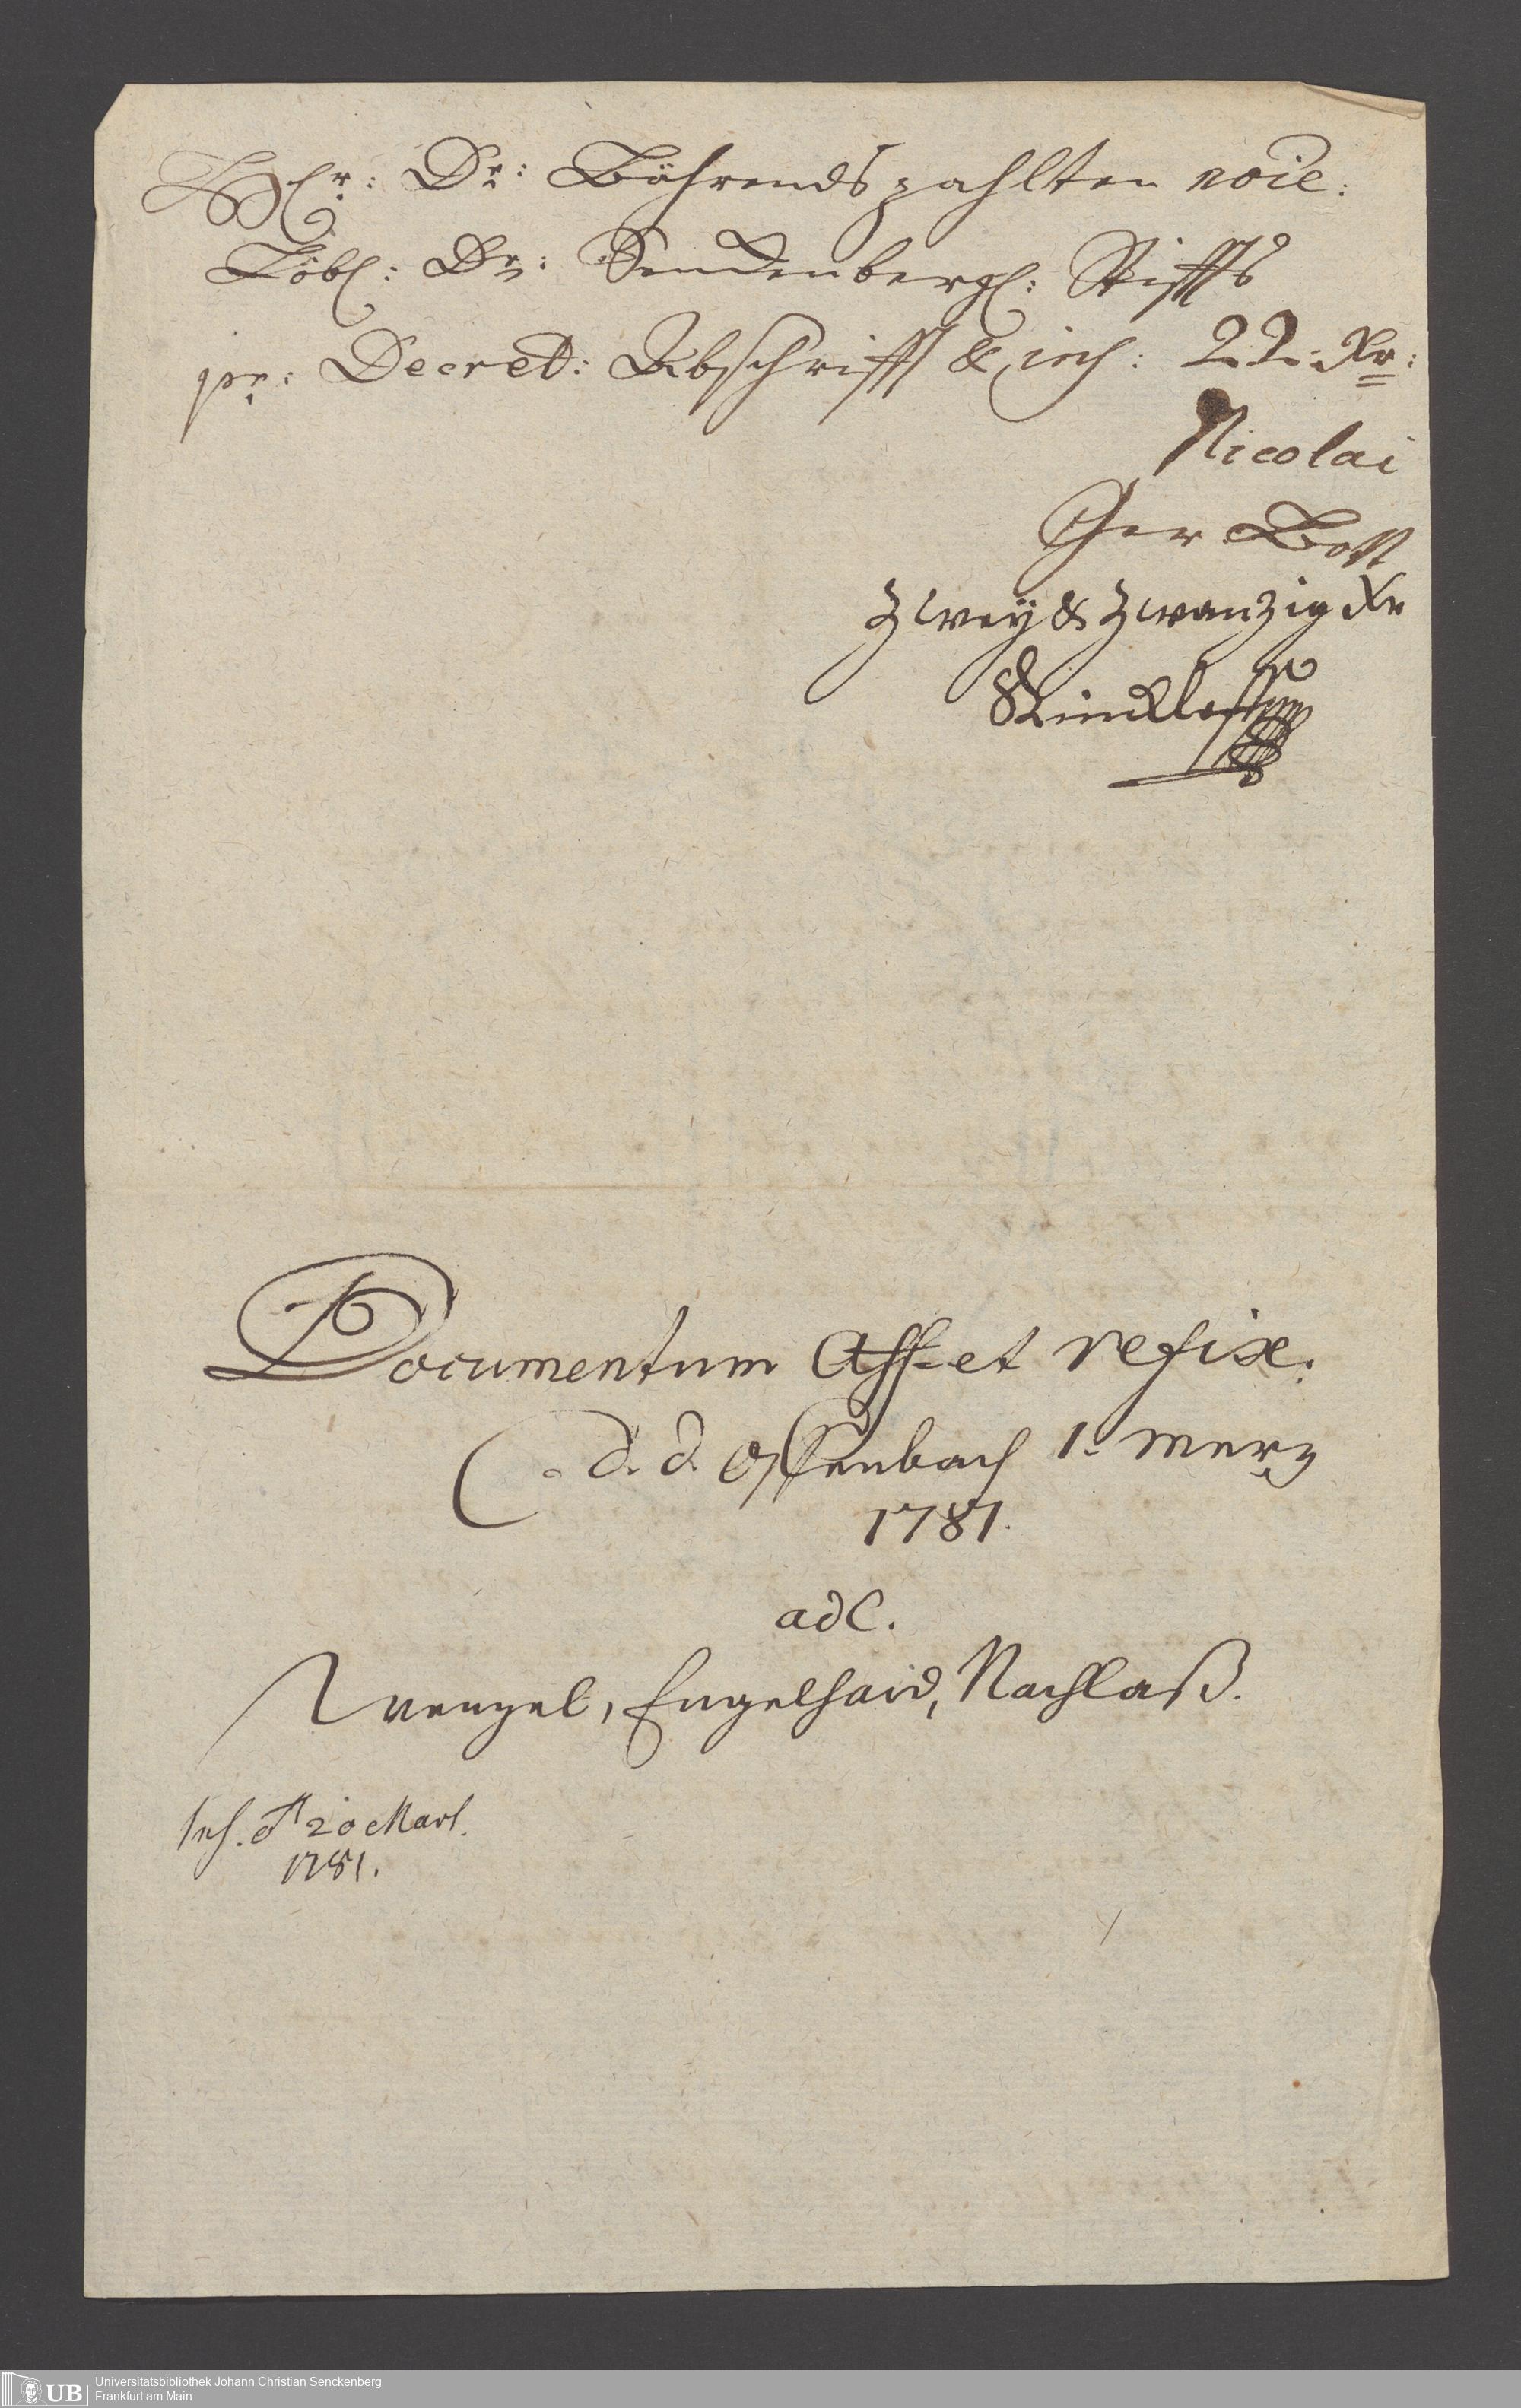 Hr: Dr: Bährends zahlten noie:
Löbl: Dr: Senckenbergl: Stiffts
pr: Decret: Abschrifft & : 22. Xr:
Nicolai
Ger Bott
Zwey & Zwanzig Xr
Documentum Aff= et refix:
d. d. Offenbach 1. Merz
1781.
ad C.
Wenzel, Engelhard, Nachlaß.
Ins. d 20 Mart.
1781.
UB
Universitätsbibliothek Johann Christian Senckenberg
Frankfurt am Main